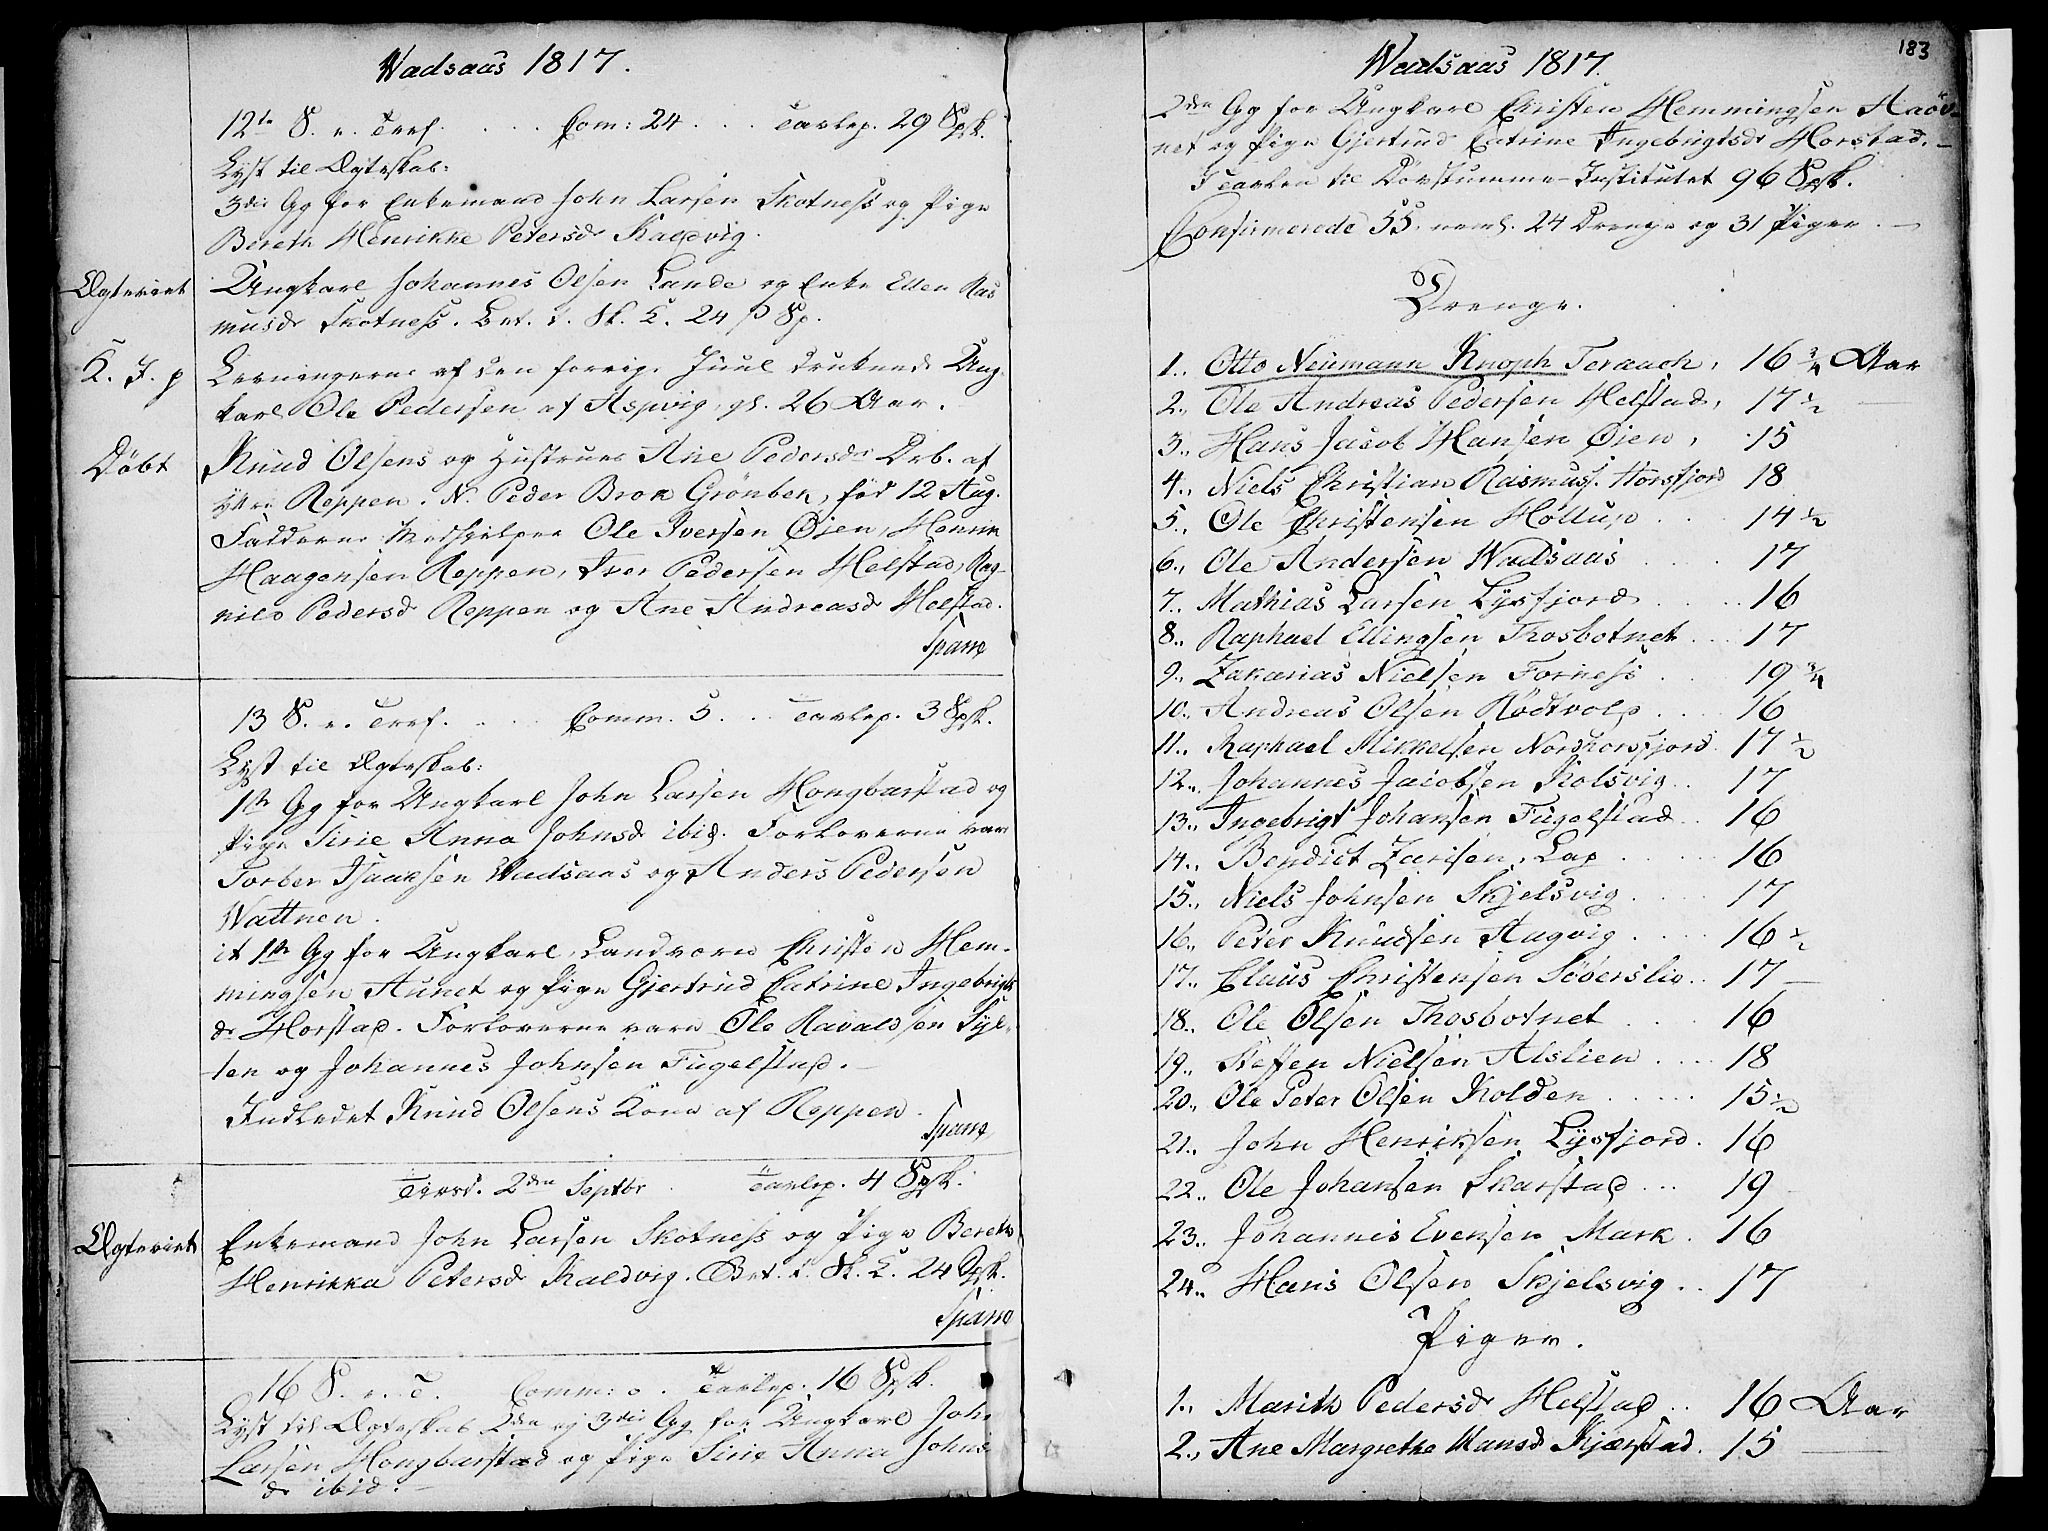 Wadsaas 1817.
12te S. e. Tref. . . . Com: 24 . . . Tavlep. 29 Spsk.
Lyst til Ægteskab:
3die Gg for Enkemand John Larsen Skotness og Pige
Bereth Henrikke Petersdr Kaldvig.
Ægteviet Ungkarl Johannes Olsen Lande og Enke Ellen Ras
musdr Skotness. Brt. t. Sk. K. 24 Sp.
K. J. p Levningerne af den forrige Juul druknede Ung
karl Ole Pedersen af Aspvig, gl. 26 Aar.
Döbt Knud Olsens og Hustrues Ane Pedersdr Drb. af
Reppen. N. Peder Brok Grönbek, föd 12 Aug.
Fadderne: Medhjelper Ole Iversen Øien, Henrik
Haagensen Reppen, Iver Pedersen Helstad, Rag-
nild Pedersdr Reppen og Ane Andreasdr Helstad.
13 S. e. Tref. . . . Comm. 5 . . Tavlep. 3 Spsk.
Lyst til Ægteskab:
1te Gg for Ungkarl John Larsen Hongbarstad og
Pige Sirie Anna Johnsdr ibid. Forloverne var
Torber Isaaksen Wadsaas og Anders Pedersen
Wattnen.
it 1te Gg for Ungkarl, Landværn Christen Hem-
mingsen Aunet og Pige Gjertrud Catrine Ingebrigts
dr Horstad. Forloverne vare Ole Ravaldsen Syl-
ten og Johannes Johnsen Fugelstad.
Indledet Knud Olsens Kone af Reppen.
Tirsd. 2den Septbr . Tavlep. 4 Spsk.
Ægteviet Enkemand John Larsen Skotness og Pige Bereth
Henrikka Petersdr Kaldvig. Brt. t. Sk. K. 24 Spsk.
16 S. e. T. Comm: 0. Tavlep. 16 Spsk.
Lyst til Ægteskab 2den og 3die Gg for Ungkarl John
Larsen Hongbarstad og Pige Sirie Anna Johns
dr ibid.
183
Wadsaas 1817.
2den Gg for Ungkarl Christen Hemmingsen
net og Pige Gjertrud Catrine Ingebrigtsdr Horstad.
I Tavlen til Dövstumme-Institutet 96 Spsk.
Confirmerede 55, neml. 24 Drenge og 31 Piger.
Drenge.
1., Otto Neumann Knoph Teraach, 16 3/4 Aar
2., Ole Andreas Pedersen Helstad, 17 1/2
3., Hans Jacob Hansen Øien, 15
4., Niels Christian Rasmuss. Horsfjord 18
5., Ole Christensen Höllup . . . 14 1/2
6., Ole Andersen Wadsaas . . . 17
7., Mathias Larsen Lysfjord . . . 16
8., Raphael Ellingsen Thosbotnet . . 17
9., Zakarias Nielsen Forness . . 19 3/4
10., Andreas Olsen Rödtvold . . . 16
11., Raphael Mikkelsen Nordhorsfjord. 17 1/2
12., Johannes Jacobsen Kolsvig . . 17
13., Ingebrigt Johansen Fugelstad . . 16
14., Bendict Zarisen, Lap . . . 16
15., Niels Johnsen Skjelsvig . . . 17
16., Peter Knudsen Aagvig . . . 16 1/2
17., Claus Christensen Söverslid . . 17
18., Ole Olsen Thosbotnet . . . 16
19., Steffen Nielsen Alslien . . . 18
20., Ole Peter Olsen Kolden . . . 15 1/2
21., John Henriksen Lysfjord . 16
22., Ole Johansen Skarstad . . . 19
23., Johannes Evensen Mark . 16
24., Hans Olsen Skjelsvig . . 17
Piger.
1., Marith Pedersdr Helstad . . 16 Aar
2., Ane Margrethe Hansdr Kjærstad . 15